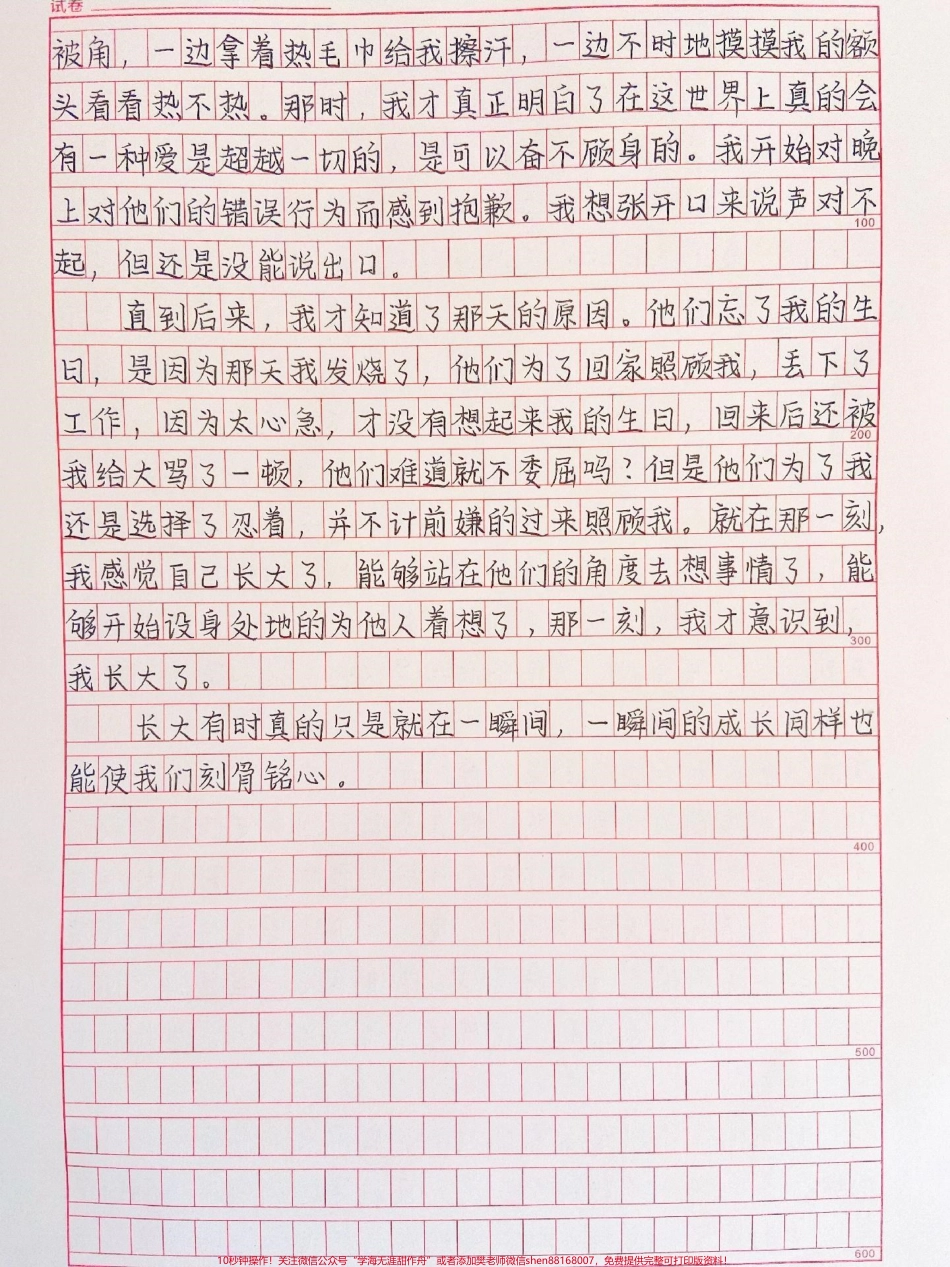 试卷
被角，一边拿着热毛巾给我擦汗，一边不时地摸摸我的额
头看看热不热。那时，我才真正明白了在这世界上真的会
有一种爱是超越一切的，是可以奋不顾身的。我开始对晚
上对他们的错误行为而感到抱歉。我想张开口来说声对不
100
起，但还是没能说出口。
直到后来，我才知道了那天的原因。他们忘了我的生
日，是因为那天我发烧了，他们为了回家照顾我，丢下了
工作，因为太心急，才没有想起来我的生日，回来后还被
200
我给大骂了一顿，他们难道就不委屈吗？但是他们为了我
还是选择了忍着，并不计前嫌的过来照顾我。就在那一刻，
我感觉自己长大了，能够站在他们的角度去想事情了，能
够开始设身处地的为他人着想了，那一刻，我才意识到，
300
我长大了。
长大有时真的只是就在一瞬间，一瞬间的成长同样也
能使我们刻骨铭心。
400
500
600
10秒钟操作！关注微信公众号“学海无涯甜作舟”或者添加樊老师微信shen88168007，免费提供完整可打印版资料！